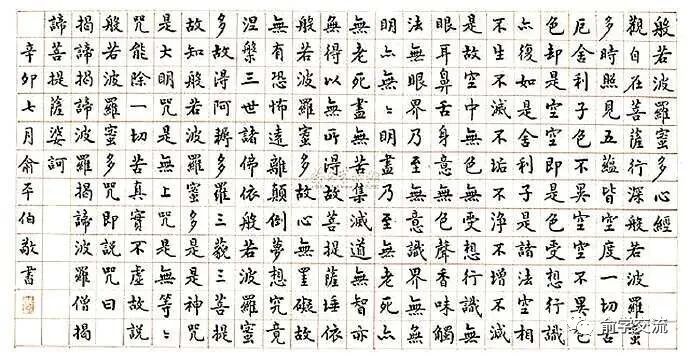 般若波羅蜜多心經
觀自在菩薩行深般若波羅蜜
多時照見五蘊皆空度一切苦
厄舍利子色不異空空不異色
色即是空空即是色受想行識
亦復如是舍利子是諸法空相
不生不滅不垢不淨不增不減
是故空中無色無受想行識無
眼耳鼻舌身意無色聲香味觸
法無眼界乃至無意識界無無
明亦無〻明盡乃至無老死亦
無老死盡無苦集滅道無智亦
無得以無所得故菩提薩埵依
般若波羅蜜多故心無罣礙故
無有恐怖遠離顛倒夢想究竟
涅槃三世諸佛依般若波羅蜜
多故得阿耨多羅三藐三菩提
故知般若波羅蜜多是大神咒
是大明咒是無上咒是無等〻
咒能除一切苦真實不虛故說
般若波羅蜜多咒即說咒曰
揭諦揭諦波羅揭諦波羅僧揭
諦菩提薩婆訶
辛卯七月俞平伯敬書
俞学交流